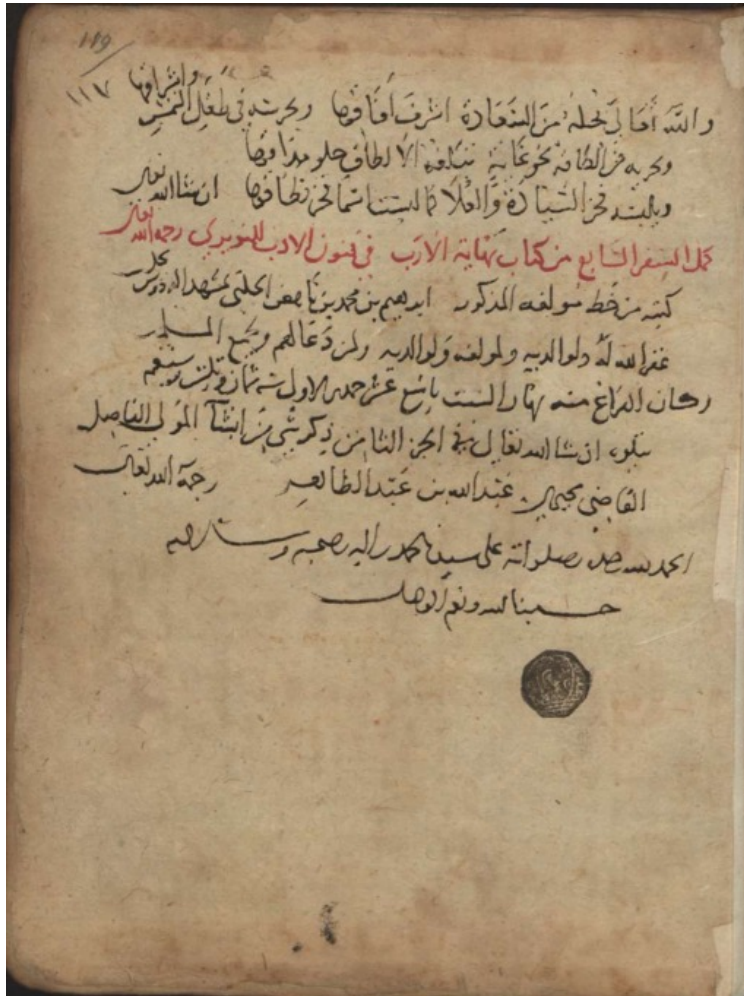 119
١١٧
والله تعالى يحله من السعادة اشرف آفاقها ويحرسه في طفل الشمس واشراقها
ويجريه من الطافه نحو غاية
ويلبسه فخر السيادة والعلا كما لبست اسما فخر نطاقها ان شا الله تعالى
كمل السفر السابع من كتاب نهاية الارب في فنون الادب للنويري رحمه الله تعالى
كتبه من خط مولفه المذكور ابرهيم بن محمد بن ناهض الحلبي
غفر الله له ولوالديه ولمولفه ولوالديه ولمن دعا لهم ولجميع المسلمين
وكان الفراغ منه نهار السبت تاسع عشر جمدى الاول سنة ثمان وثلثين وسبعميه
يتلوه ان شا الله تعالى في الجزء الثامن ذكر شي من انشآ المولى الفاضل
القاضي محيي الدين عبد الله بن عبد الظاهر رحمه الله تعالى
الحمد لله وحده وصلواته على سيدنا محمد واله وصحبه وسلامه
حسبنا الله ونعم الوكيل